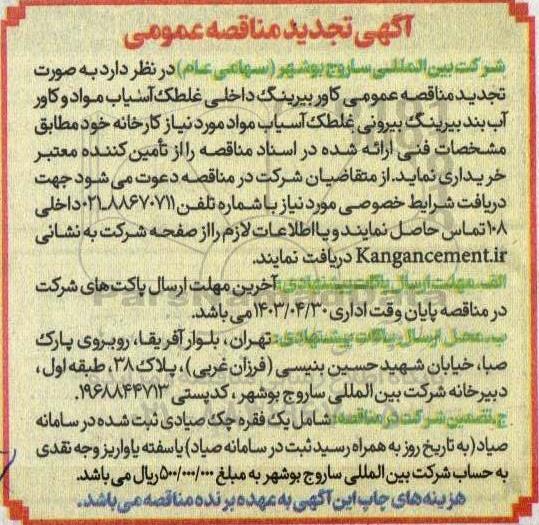 آگهی تجدید مناقصه عمومی
شرکت بین المللی ساروج بوشهر (سهامی عام) در نظر دارد به صورت
تجدید مناقصه عمومی کاور بیرینگ داخلی غلطک آسیاب مواد و کاور
آب بند بیرینگ بیرونی غلطک آسیاب مواد مورد نیاز کارخانه خود مطابق
مشخصات فنی ارائه شده در اسناد مناقصه را از تأمین کننده معتبر
خریداری نماید. از متقاضیان شرکت در مناقصه دعوت می شود جهت
دریافت شرایط خصوصی مورد نیاز با شماره تلفن ۸۸۶۷۰۷۱۱-۰۲۱ داخلی
۱۰۸ تماس حاصل نمایند و یا اطلاعات لازم را از صفحه شرکت به نشانی
Kangancement.ir دریافت نمایند.
الف-مهلت ارسال پاکات پیشنهادی: آخرین مهلت ارسال پاکت های شرکت
در مناقصه پایان وقت اداری ۱۴۰۳/۰۴/۳۰ می باشد.
ب-محل ارسال پاکات پیشنهادی: تهران، بلوار آفریقا، روبروی پارک
صبا، خیابان شهید حسین بنیسی (فرزان غربی)، پلاک ۳۸، طبقه اول،
دبیرخانه شرکت بین المللی ساروج بوشهر، کدپستی ۱۹۶۸۸۴۴۷۱۳.
ج-تضمین شرکت در مناقصه: شامل یک فقره چک صیادی ثبت شده در سامانه
صیاد (به تاریخ روز به همراه رسید ثبت در سامانه صیاد) یا سفته یا واریز وجه نقدی
به حساب شرکت بین المللی ساروج بوشهر به مبلغ ۵۰۰/۰۰۰/۰۰۰ ریال می باشد.
هزینه های چاپ این آگهی به عهده برنده مناقصه می باشد.